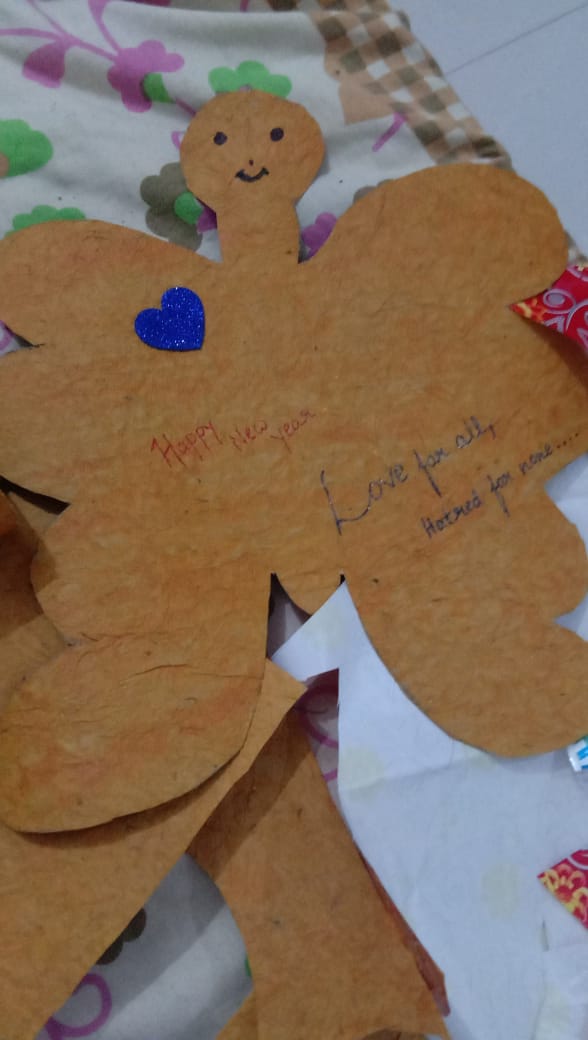 Happy New year
Love for all,
Hatred for none....